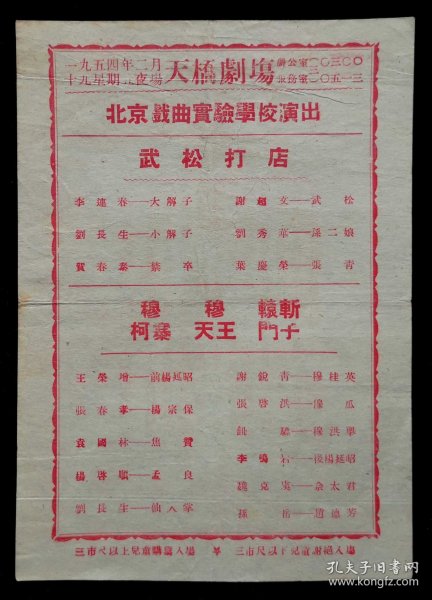 一九五四年二月
十九星期五夜場
天橋劇場
辦公室三〇三〇〇
票務室三〇五一三
北京戲曲實驗學校演出
武松打店
李連春——大解子 謝超文——武松
劉長生——小解子 劉秀華——孫二娘
賀春泰——禁卒 葉慶榮——張青
穆柯寨 穆天王 轅門斬子
王榮增——前楊延昭 謝銳青——穆桂英
張春孝——楊宗保 張啓洪——穆瓜
袁國林——焦贊 鈕驃——穆洪舉
楊啓順——孟良 李鳴岩——後楊延昭
劉長生——仙人掌 趙克英——佘太君
孫岳——趙德芳
三市尺以上兒童購票入場 三市尺以下兒童謝絕入場
孔夫子旧书网
kongfz.com